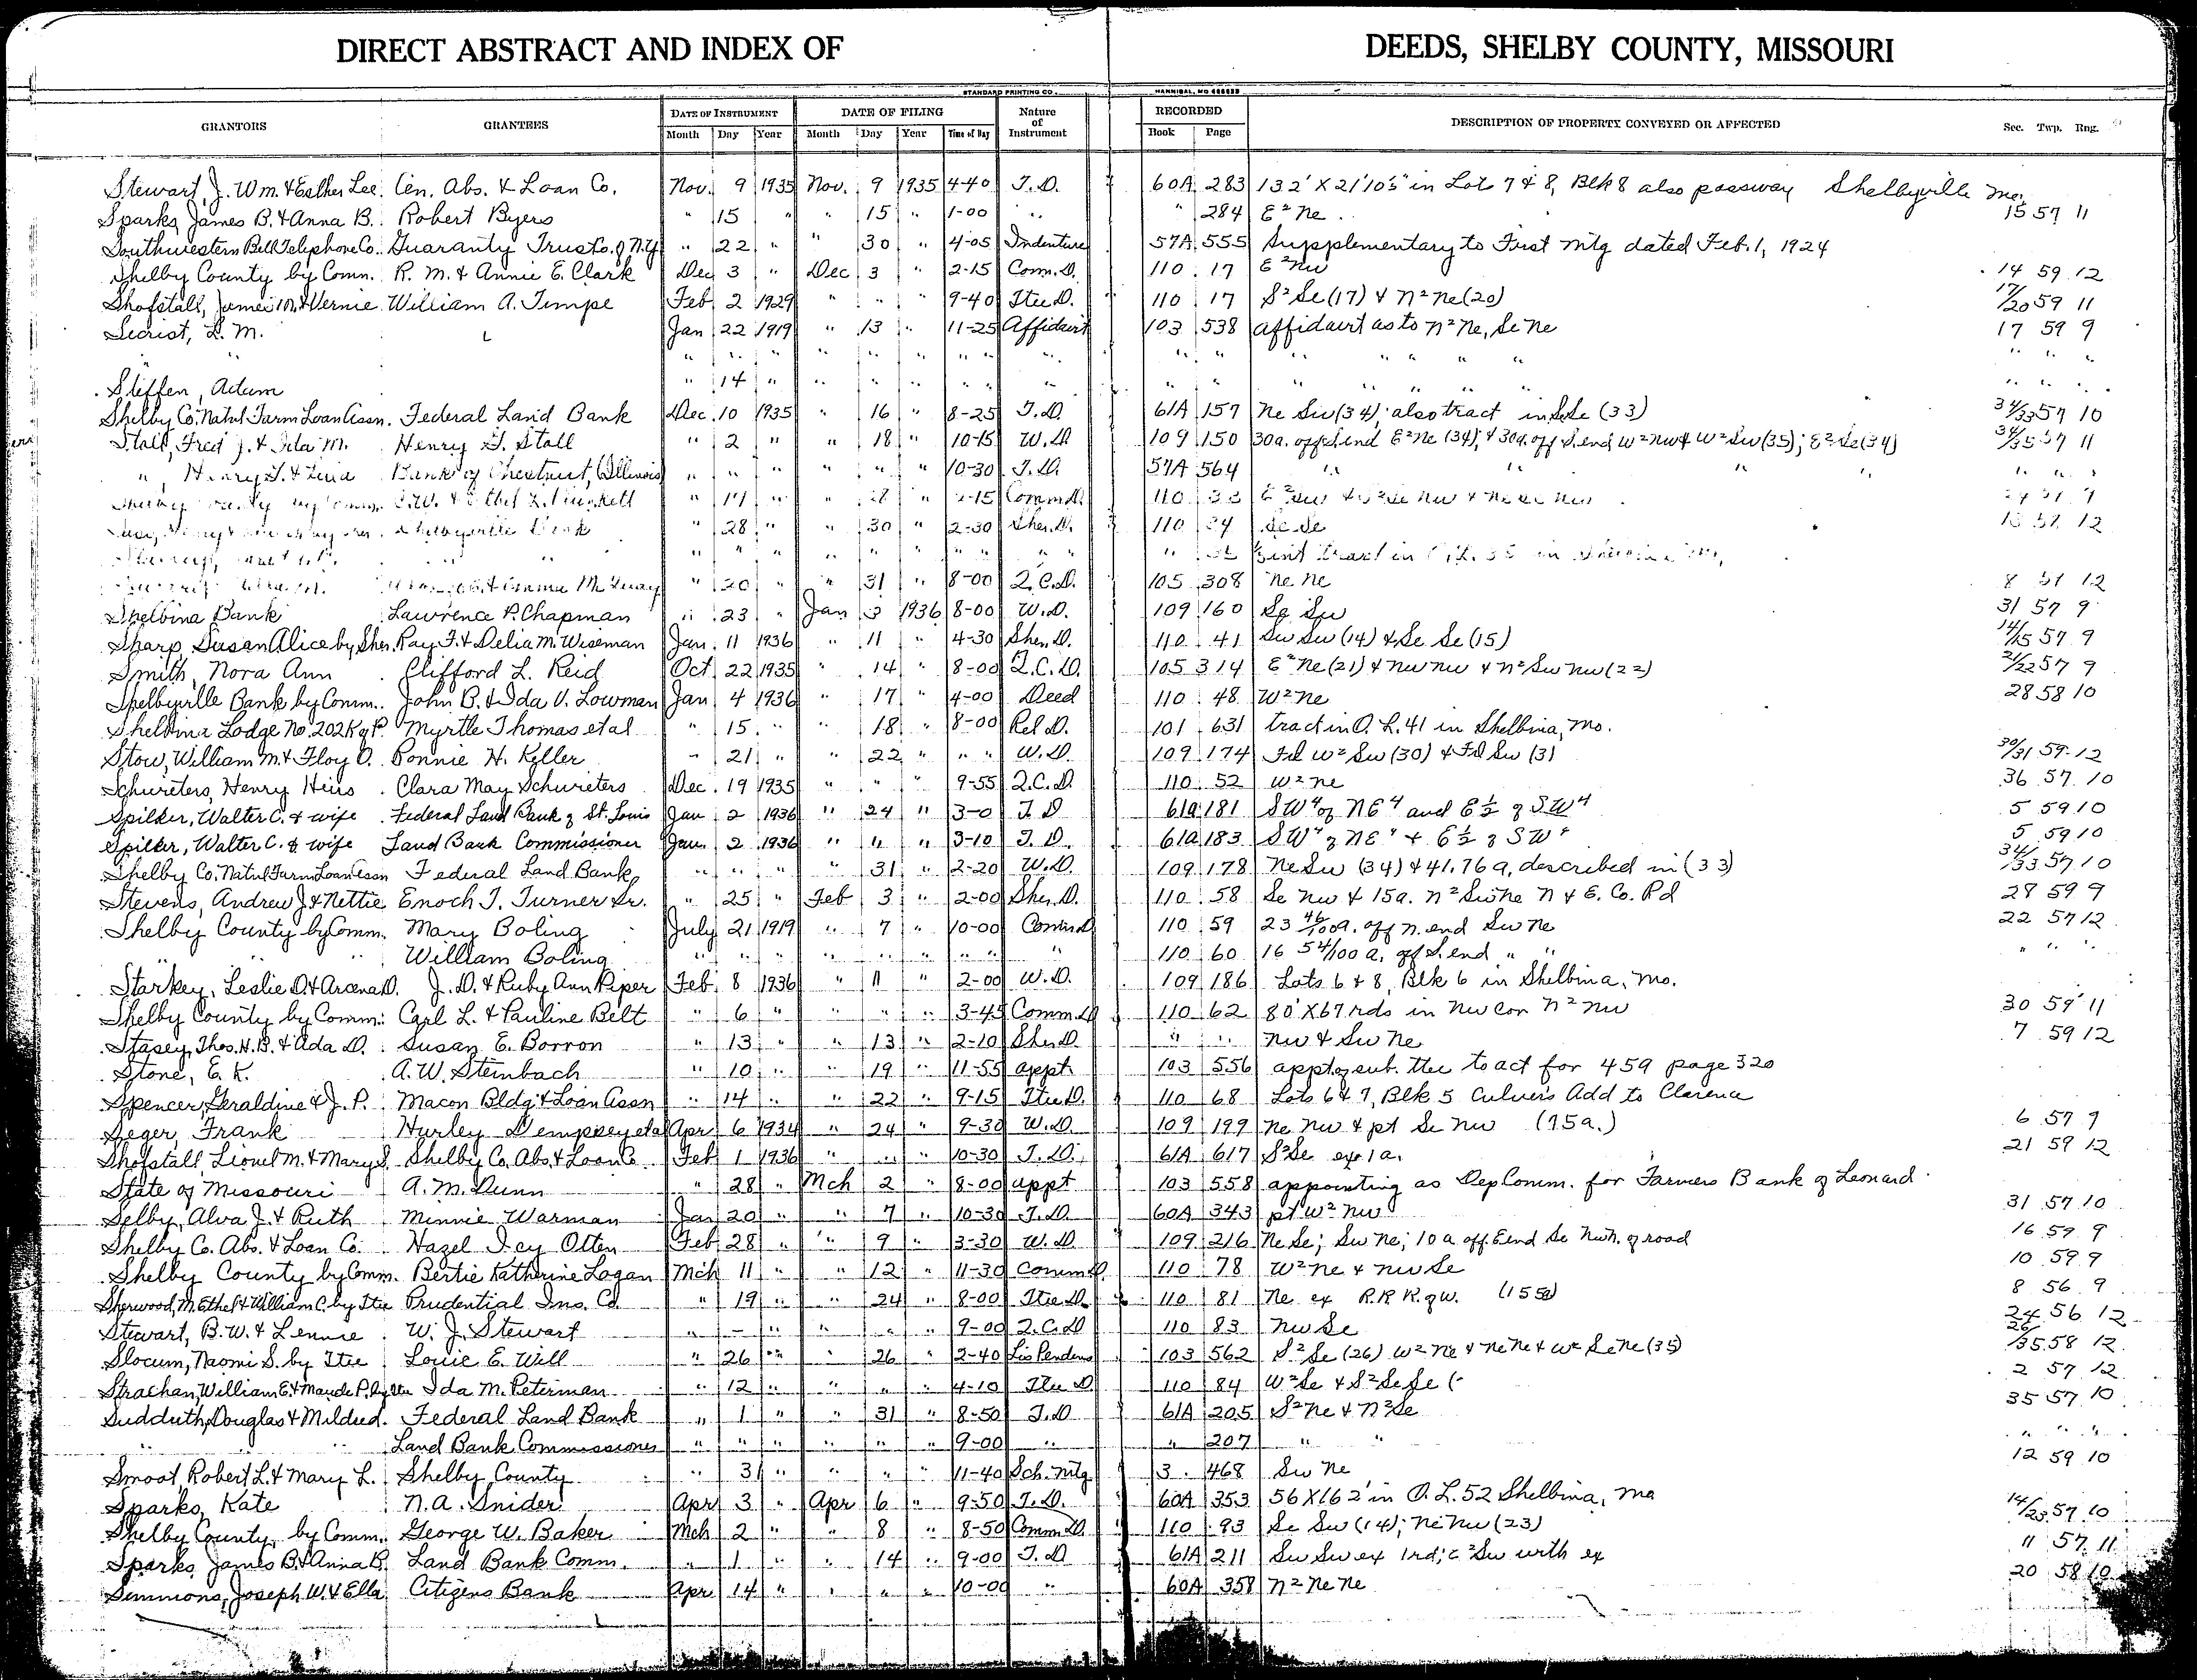 DIRECT ABSTRACT AND INDEX OF DEEDS, SHELBY COUNTY, MISSOURI
STANDARD PRINTING CO. HANNIBAL, MO
GRANTORS GRANTEES DATE OF INSTRUMENT DATE OF FILING Nature of Instrument RECORDED DESCRIPTION OF PROPERTY CONVEYED OR AFFECTED Sec. Twp. Rng.
Month Day Year Month Day Year Time of Day Book Page
Stewart, J. Wm. & Esther Lee Cen. Abs. & Loan Co. Nov. 9 1935 Nov. 9 1935 4-40 T.D. 60A 283 132' X 21'10.5" in Lots 7 & 8, Blk 8 also passway Shelbyville Mo.
Sparks, James B. & Anna B. Robert Byers " 15 " " 15 " 1-00 " " 284 E² Ne 15 57 11
Southwestern Bell Telephone Co. Guaranty Trust Co. of N.Y. " 22 " " 30 " 4-05 Indenture 57A 555 Supplementary to First Mtg dated Feb. 1, 1924
Shelby County by Comm. R. M. & Annie E. Clark Dec 3 " Dec 3 " 2-15 Com. D. 110 17 E² Nw 14 59 12
Shofstall, James M. & Vernie William A. Timpe Feb 2 1929 " " " 9-40 Ttee D. 110 17 S² Se (17) & N² Ne (20) 17/20 59 11
Secrist, L. M. Jan 22 1919 " 13 " 11-25 Affidavit 103 538 affidavit as to N² Ne, Se Ne 17 59 9
" " " " " " " " " " " " " " " " " "
Steffen, Adam " 14 " " " " " " " " " " " " " " " "
Shelby Co. Natnl Farm Loan Assn. Federal Land Bank Dec. 10 1935 " 16 " 8-25 T.D. 61A 157 Ne Sw (34); also tract in SeSe (33) 34/33 57 10
Stall, Fred J. & Ida M. Henry G. Stall " 2 " " 18 " 10-15 W.D. 109 150 30a. off S. end E² Ne (34); & 30a. off S. end W² Nw & W² Sw (35); E² Se (34) 34/35 57 11
", Henry G. & Bank of Chestnut, (Illinois) " " " " " " 10-30 T.D. 57A 564 " " " " " " "
Shelby County by Comm. C.W. & Ethel " 17 " " " 2-15 Comm D. 110 33
" 28 " " 30 " 2-30 Sher. D. 110 34 Se Se 57 12
" " " " " " " " " "
" 20 " " 31 " 8-00 Q.C.D. 105 308 Ne Ne 8 12
Shelbina Bank Lawrence P. Chapman " 23 " Jan 3 1936 8-00 W.D. 109 160 Se Sw 31 57 9
Sharp, Susan Alice by Sher. Ray F. & Delia M. Wiseman Jan. 11 1936 " 11 " 4-30 Sher D. 110 41 Sw Sw (14) & Se Se (15) 14/15 57 9
Smith, Nora Ann Clifford L. Reid Oct 22 1935 " 14 " 8-00 Q.C.D. 105 314 E² Ne (21) & Nw Nw & N² Sw Nw (22) 21/22 57 9
Shelbyville Bank by Comm. John B. & Ida V. Lowman Jan 4 1936 " 17 " 4-00 Deed 110 48 W² Ne 28 58 10
Shelbina Lodge No. 202 K of P. Myrtle Thomas et al " 15 " " 18 " 8-00 Rel D. 101 631 tract in O. L. 41 in Shelbina, Mo.
Stow, William M. & Floy O. Bonnie H. Keller " 21 " " 22 " " " W.D. 109 174 Frl W² Sw (30) & Frl Sw (31 30/31 59 12
Schwieters, Henry Heirs Clara May Schwieters Dec. 19 1935 " " " 9-55 Q.C.D. 110 52 W² Ne 36 57 10
Spilker, Walter C. & wife Federal Land Bank of St. Louis Jan 2 1936 " 24 " 3-0 T.D 61a 181 SW⁴ of NE⁴ and E½ of SW⁴ 5 59 10
Spilker, Walter C. & wife Land Bank Commissioner Jan. 2 1936 " " " 3-10 T.D. 61a 183 SW⁴ of NE⁴ & E½ of SW⁴ 5 59 10
Shelby Co. Natnl Farm Loan Assn Federal Land Bank " " " " 31 " 2-20 W.D. 109 178 Ne Sw (34) & 41.76 a, described in (33) 34/33 57 10
Stevens, Andrew J. & Nettie Enoch T. Turner Sr. " 25 " Feb 3 " 2-00 Sher. D. 110 58 Se Nw & 15a. N² Sw Ne N & E. Co. Rd 28 59 9
Shelby County by Comm. Mary Boling July 21 1919 " 7 " 10-00 Comm D 110 59 23 46/100 a. off N. end Sw Ne 22 57 12
" " William Boling " " " " " " " " " 110 60 16 54/100 a. off S. end " " " " "
Starkey, Leslie D. & Arcena D. J. D. & Ruby Ann Piper Feb 8 1936 " 11 " 2-00 W.D. 109 186 Lots 6 & 8, Blk 6 in Shelbina, Mo.
Shelby County by Comm. Carl L. & Pauline Belt " 6 " " " " 3-45 Comm. D 110 62 80 X 67 rds in Nw cor N² Nw 30 59 11
Stasey, Thos. H. B. & Ada D. Susan E. Borron " 13 " " 13 " 2-10 Sher D. " " Nw & Sw Ne 7 59 12
Stone, E. K. A. W. Steinbach " 10 " " 19 " 11-55 appt 103 556 appt of sub. ttee to act for 459 page 320
Spencer, Geraldine & J. P. Macon Bldg & Loan Assn " 14 " " 22 " 9-15 Ttee D. 110 68 Lots 6 & 7, Blk 5 Culver's Add to Clarence
Seger, Frank Hurley Dempsey et al Apr 6 1934 " 24 " 9-30 W.D. 109 199 Ne Nw & pt Se Nw (75a.) 6 57 9
Shofstall, Lionel M. & Mary S. Shelby Co. Abs. & Loan Co Feb 1 1936 " " " 10-30 T.D. 61A 617 S² Se ex 1a. 21 59 12
State of Missouri A. M. Dunn " 28 " Mch 2 " 8-00 appt 103 558 appointing as Dep Comm. for Farmers Bank of Leonard
Selby, Alva J. & Ruth Minnie Warman Jan 20 " " 7 " 10-30 T.D. 60A 343 pt W² Nw 31 57 10
Shelby Co. Abs. & Loan Co. Hazel Icy Otten Feb 28 " " 9 " 3-30 W.D. 109 216 Ne Se; Sw Ne; 10 a off E end Se Nw N. of road 16 59 9
Shelby County by Comm. Bertie Katherine Logan Mch 11 " " 12 " 11-30 Comm D. 110 78 W² Ne & Nw Se 10 59 9
Sherwood, M. Ethel & William C. by Ttee Prudential Ins. Co. " 19 " " 24 " 8-00 Ttee D. 110 81 Ne ex R.R R. of W. (155a) 8 56 9
Stewart, B. W. & Lennie W. J. Stewart " - " " " " 9-00 Q.C.D 110 83 Nw Se 24 56 12
Slocum, Naomi S. by Ttee Louie E. Will " 26 " " 26 " 2-40 Lis Pendens 103 562 S² Se (26) W² Ne & Ne Ne & W² Se Ne (35) 26/35 58 12
Strachan, William E. & Maude P. by ttee Ida M. Peterman " 12 " " " " 4-10 Ttee D 110 84 W² Se & S² Se Se ( 2 57 12
Sudduth, Douglas & Mildred Federal Land Bank " 1 " " 31 " 8-50 T.D 61A 205 S² Ne & N² Se 35 57 10
" " Land Bank Commissioner " " " " " " 9-00 " " 207 " " " " "
Smoot, Robert L. & Mary L. Shelby County " 31 " " " " 11-40 Sch. Mtg 3 468 Sw Ne 12 59 10
Sparks, Kate N. A. Snider Apr 3 " Apr 6 " 9-50 T.D. 60A 353 56 X 162' in O. L. 52 Shelbina, Mo
Shelby County, by Comm. George W. Baker Mch 2 " " 8 " 8-50 Comm. D. 110 93 Se Sw (14); Ne Nw (23) 14/23 57 10
Sparks, James B. & Anna B. Land Bank Comm. " 1 " " 14 " 9-00 T.D 61A 211 Sw Sw ex 1 rd; E² Sw with ex 11 57 11
Simmons, Joseph W. & Ella Citizens Bank Apr 14 " " " " 10-00 " 60A 358 N² Ne Ne 20 58 10